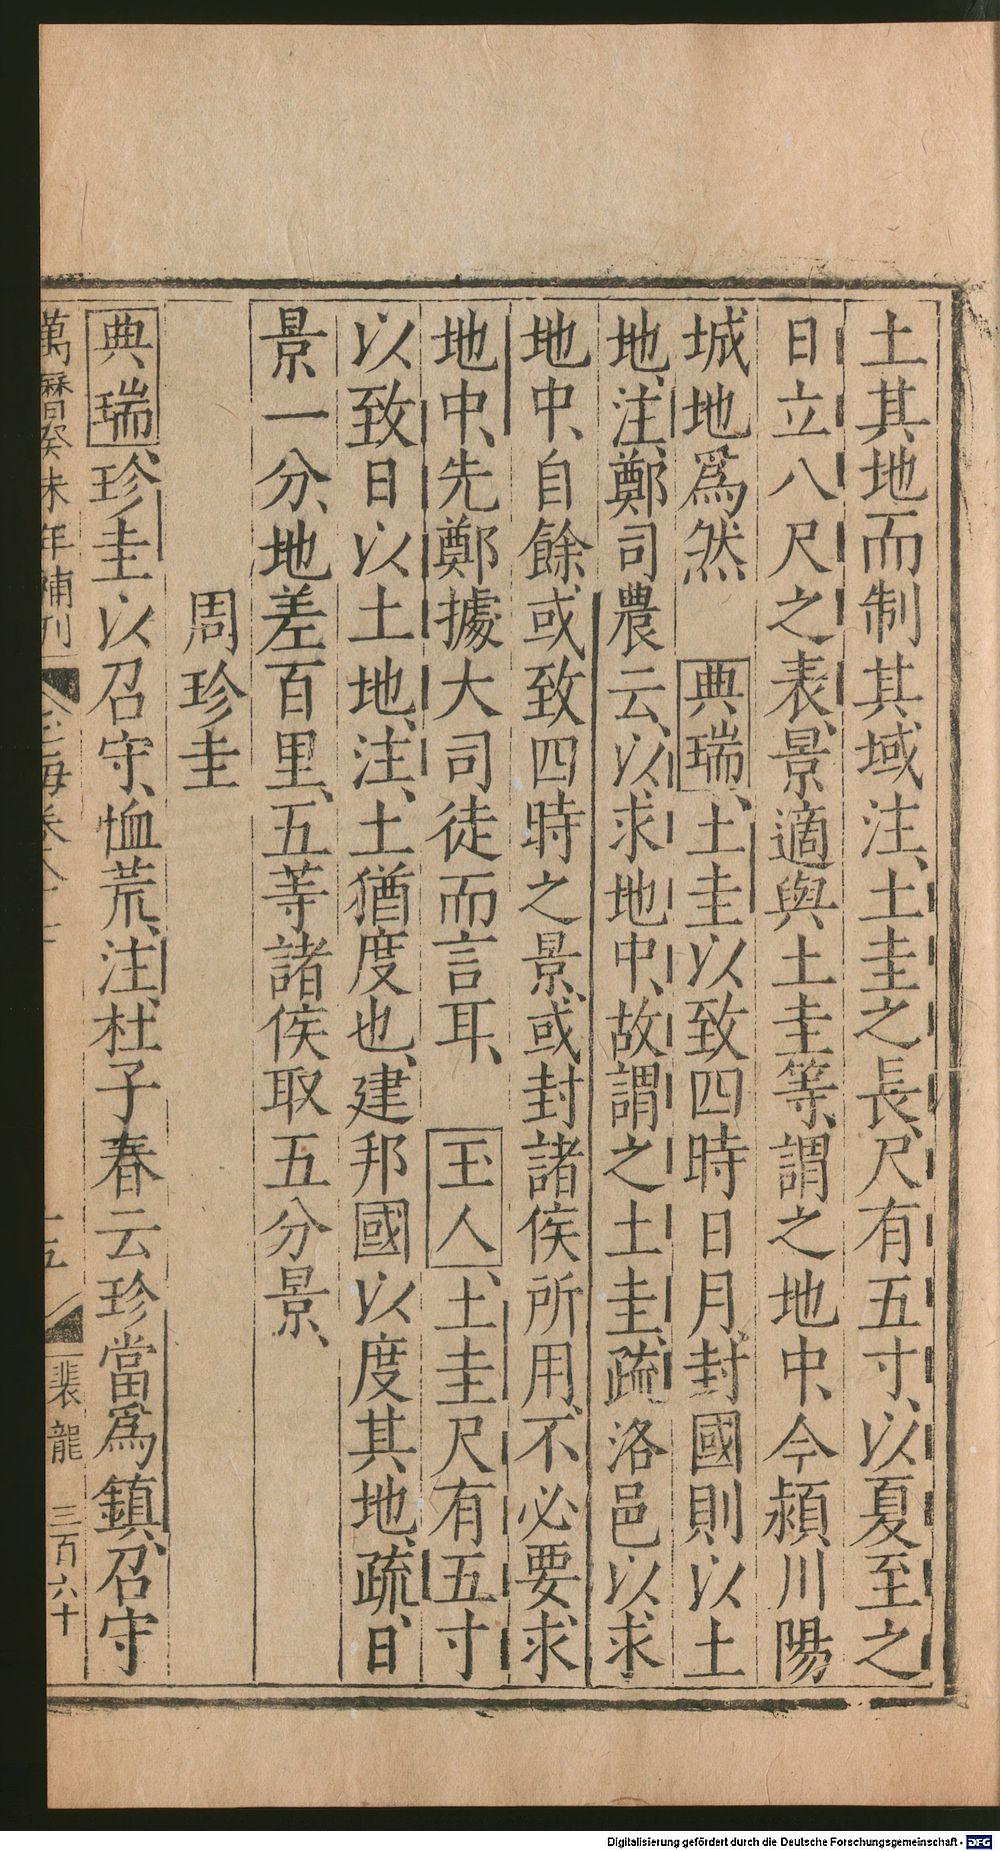 土其地而制其域注、土圭之長、尺有五寸、以夏至之
日立八尺之表、景適與土圭等、謂之地中、今潁川陽
城地爲然　典瑞、土圭以致四時日月、封國則以土
地、注、鄭司農云、以求地中、故謂之土圭、疏洛邑以求
地中、自餘或致四時之景、或封諸侯所用、不必要求
地中、先鄭據大司徒而言耳、　玉人、土圭尺有五寸
以致日以土地、注、土猶度也、建邦國以度其地、疏、日
景一分、地差百里、五等諸侯取五分景、
周珍圭
典瑞、珍圭以召守、恤荒、注、杜子春云珍當爲鎮、召守
萬曆癸未年補刊　玉海卷八十七　十五　裴龍　三百六十
Digitalisierung gefördert durch die Deutsche Forschungsgemeinschaft - DFG